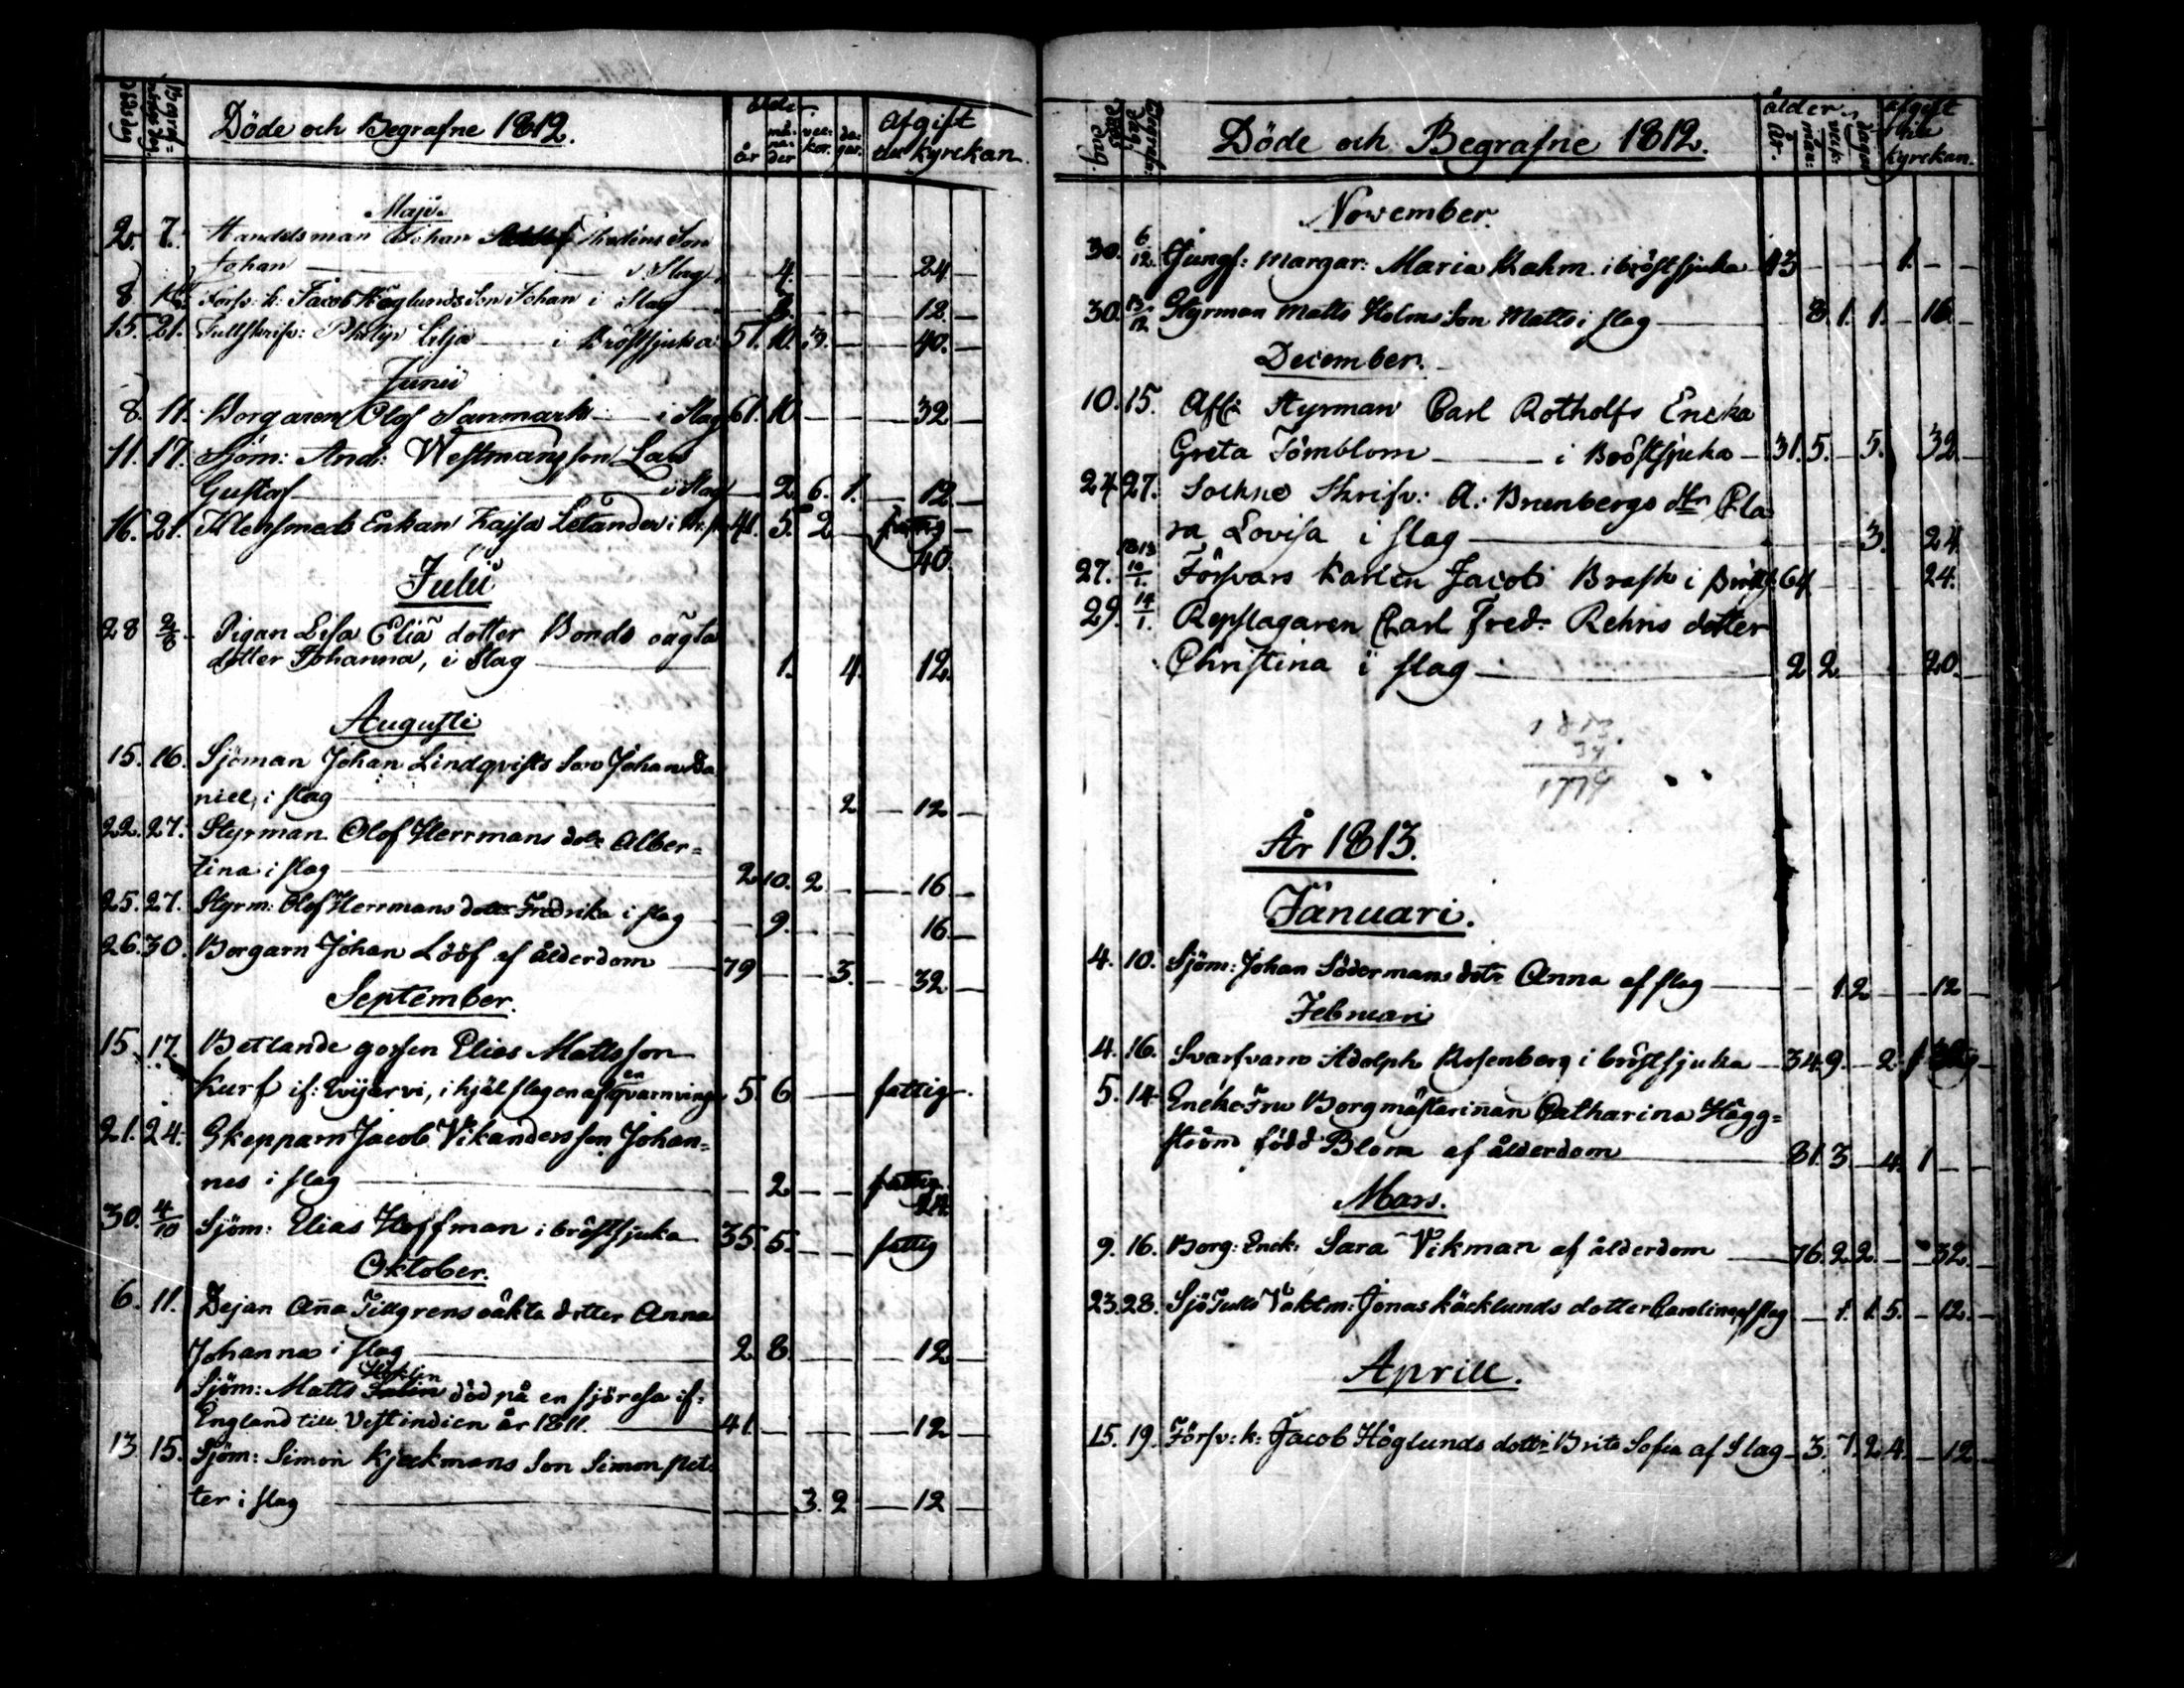 Döds dag
Begraf=
nings dag.
Döde och Begrafne 1812.
ålder
år må-na-der vec-kor. da-gar.
Afgift
till kyrckan.
Maji
2. 7. Handelsman Johan Thodéns Son
Johan — i Slag — 4. — 24 —
8. Förfv: k: Jacob Höglunds Son Johan i slag — 12. —
15. 21. Tullskrifv: Philip Lilja — i Bröstsjuka 51. 10. 3. — 40. —
Junii
8. 11. Borgaren Olof Sanmark — i Slag 61. 10. — 32 —
11. 17. Sjöm: And: Westmans son Lars
Gustaf — i Slag — 2. 6. 1. — 12 —
16. 21. Klensmeds Enkan Kajsa Letander i 41. 5. 2 — fattig —
40.
Julii
28 2/8 Pigan Lisa Elia dotter Bonds oägta
dotter Johanna, i Slag — 1. 4. 12.
Augusti
15. 16. Sjöman Johan Lindqvists Son Johan Da
niel, i slag — 2 — 12 —
22. 27. Styrman Olof Herrmans dotr Alber=
tina i slag — 2 10. 2 — 16 —
25. 27. Styrm: Olof Herrmans dotr Fredrika i slag — 9. — 16. —
26. 30. Borgarn Johan Lööf af ålderdom — 79 — 3. — 32 —
September.
15. 17. Betlande gossen Elias Mattsson
Kurf if: Evijärvi, i hjäl slagen af en qvarnvinge 5. 6 — fattig —
21. 24. Skepparn Jacob Vikanders son Johan=
nes i slag — 2 — fattig
24.
30. 4/10 Sjöm: Elias Hoffman i bröstsjuka 35. 5. — fattig
Oktober.
6. 11. Dejan Anna Tillgrens oäkta dotter Anna
Johanna i slag — 2. 8. — 12 —
Sjöm: Matts död på en sjöresa if:
England till Vestindien år 1811. — 41. — 12 —
13. 15. Sjöm: Simon Kjeckmans Son Simon Pet=
ter i slag — 3. 2 — 12 —
Döds dag.
Begrafn: dag.
Döde och Begrafne 1812.
ålder
År. mån: veck: dagar
afgift
till
kyrckan.
November.
30. 6/12 Jungf: Margar: Maria Rahm i bröstsjuka 43 — 1. — —
30. 13/12 Styrman Matts Holms Son Matts i slag — 8. 1. 1. — 16. —
December.
10. 15. Afl: Styrman Carl Rotholfs Encka
Greta Törnblom — i Bröstsjuka — 31. 5. — 5. 32 —
24. 27. Sockne Skrifv: A: Brunbergs dtr Cla=
ra Lovisa i slag — 3. 24
1813
27. 10/1. Försvars Karlen Jacob Brask i Bröstsj 64 — 24.
29. 14/1. Repslagaren Carl Fred: Rehns dotter
Christina i slag — 2. 2 — 20. —
1813.
34
1779
År 1813.
Januari.
4. 10. Sjöm: Johan Södermans dotr Anna af slag — 1. 2 — 12 —
Februari
4. 16. Svarfvarn Adolph Rosenberg i bröstsjuka — 34. 9. — 2.
5. 14. Enckefru Borgmästarinnan Catharina Hägg=
ström född Blom af ålderdom — 81. 3. — 4. 1 — —
Mars.
9. 16. Borg: Enck: Sara Vikman af ålderdom — 76. 2. 2. — 32. —
23. 28. Sjö Tulls Vaktm: Jonas Käcklunds dotter Carolina af slag — 1. 1. 5. — 12. —
Aprill.
15. 19. Förfv: k: Jacob Höglunds dottr Brita Sofia af Slag — 3. 7. 2 4. — 12 —